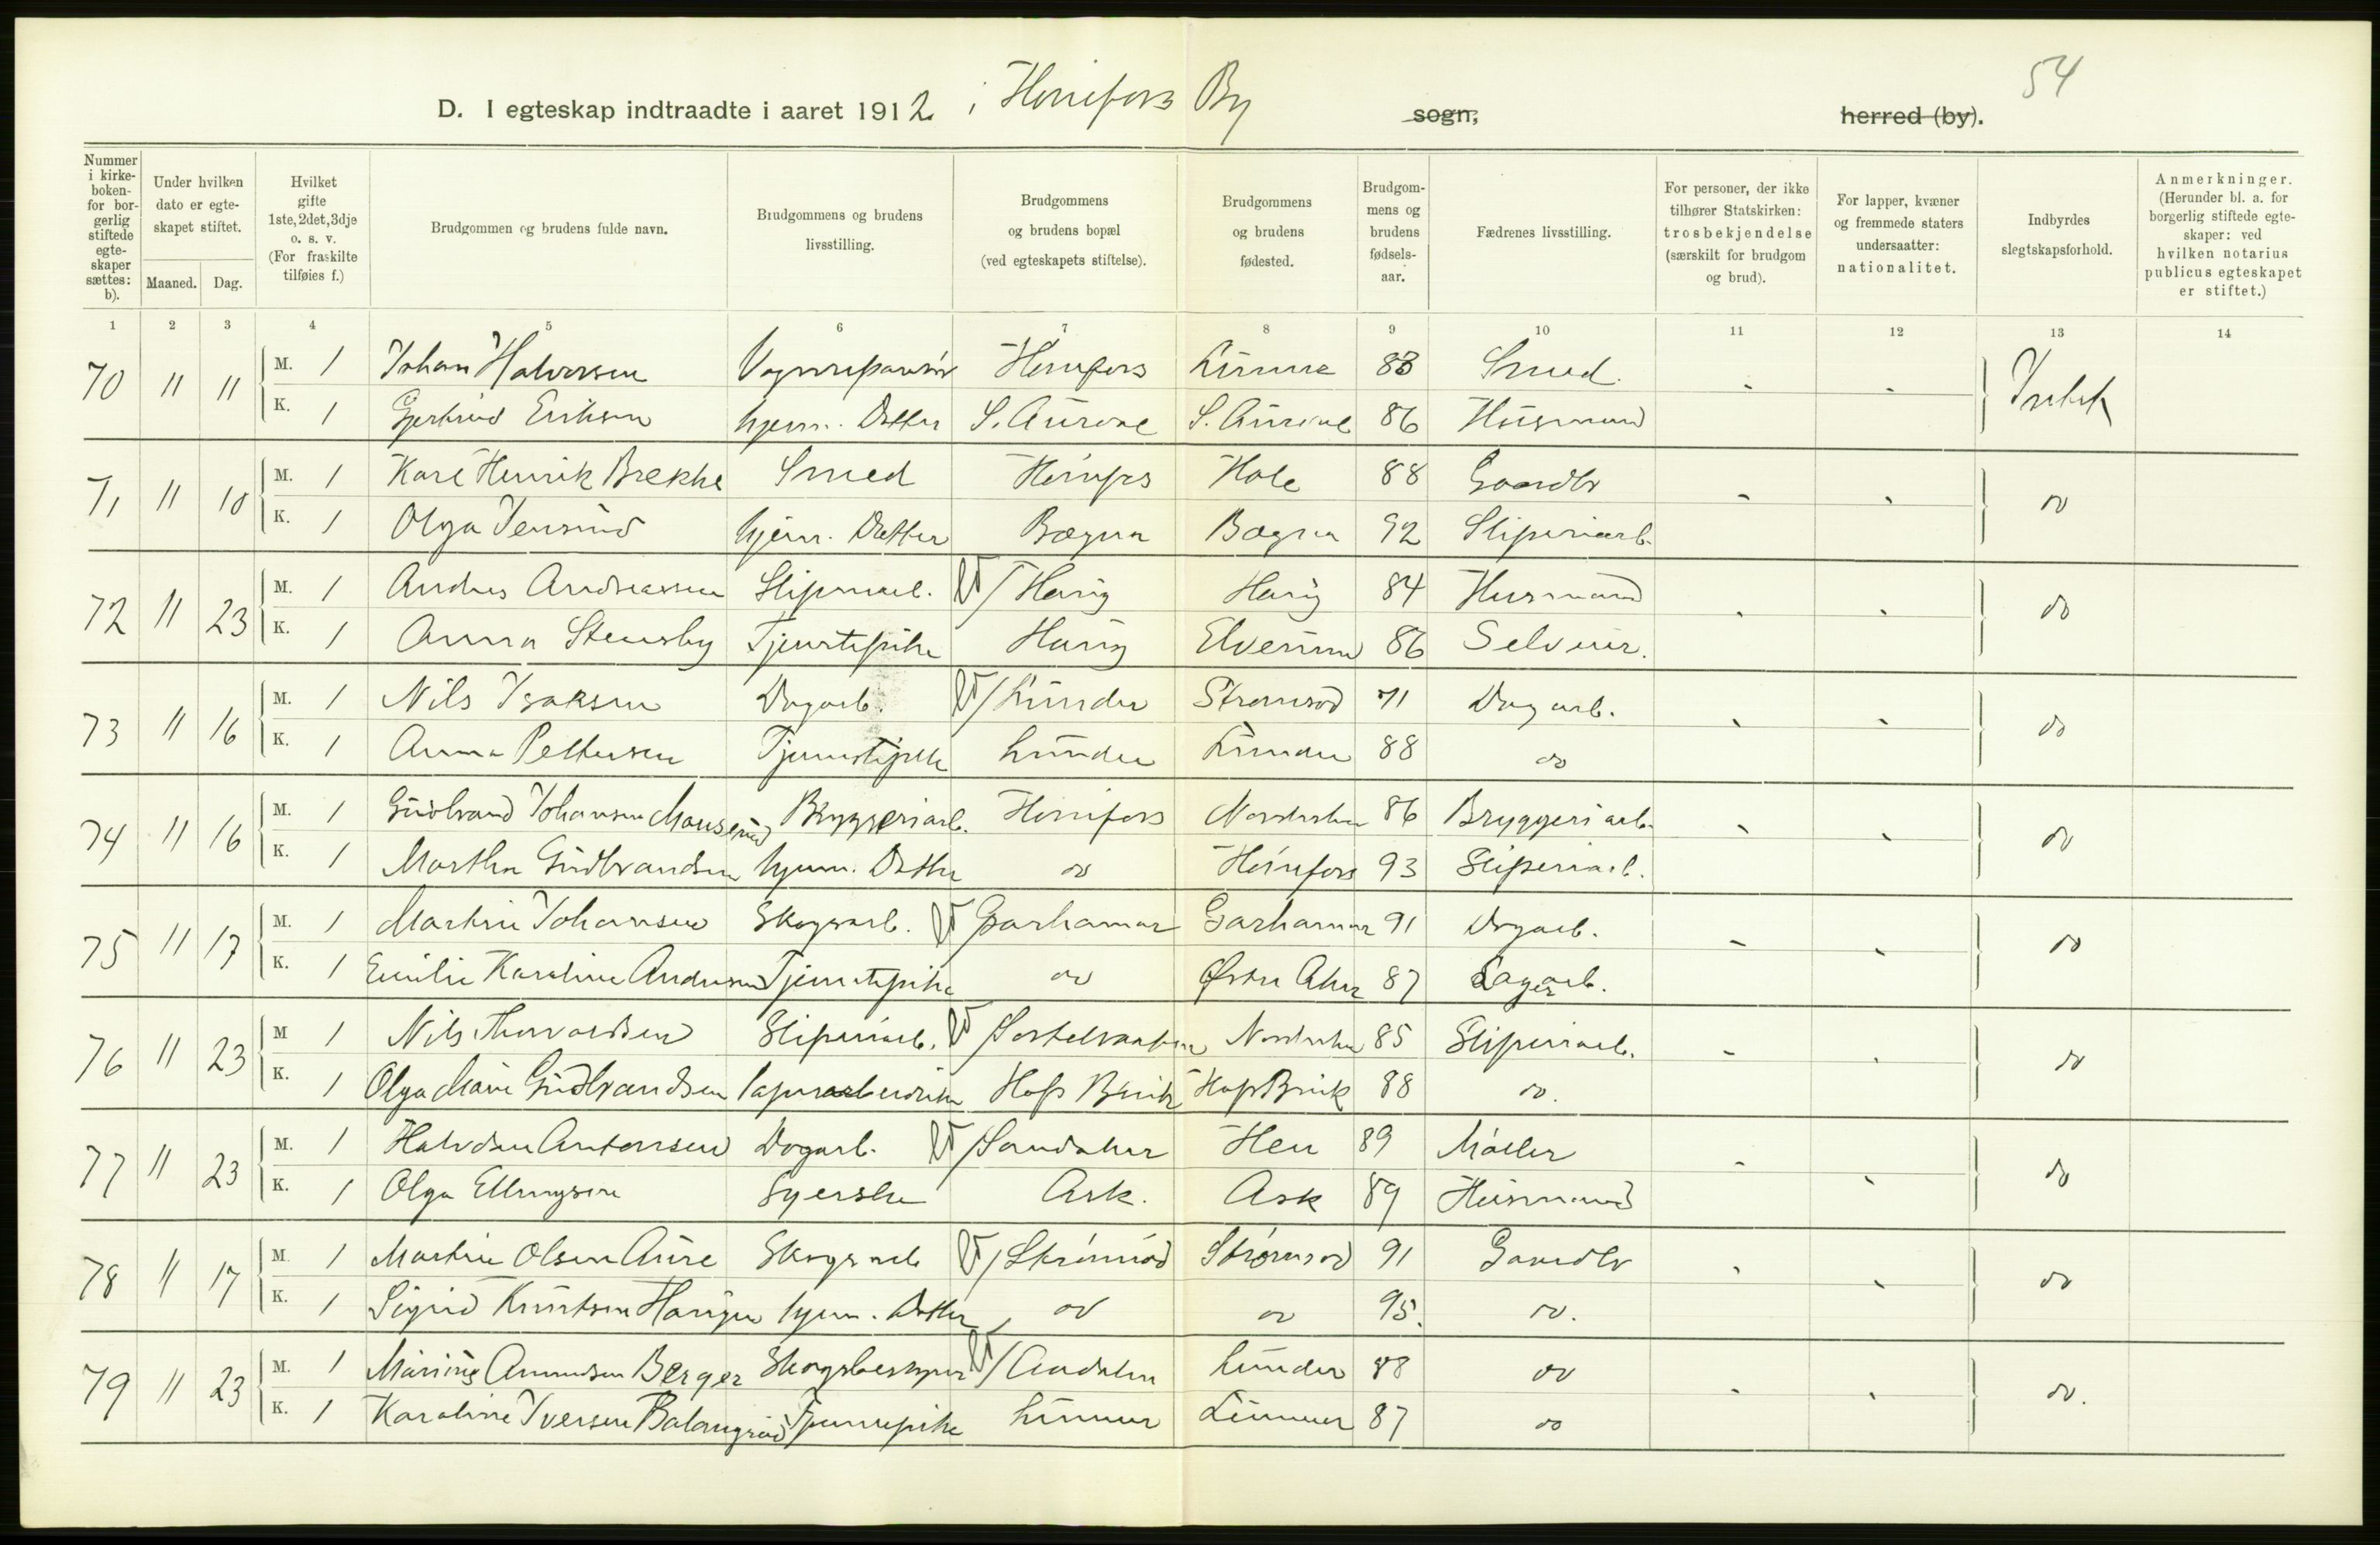 54
D. I egteskap indtraadte i aaret 1912 i Hønefoss By sogn, herred (by).
Nummer i kirke-boken- for bor-gerlig stiftede egte-skaper sættes: b).
Under hvilken dato er egte-skapet stiftet.
Maaned. Dag.
Hvilket gifte 1ste, 2det, 3dje o. s. v. (For fraskilte tilføies f.)
Brudgommen og brudens fulde navn.
Brudgommens og brudens livsstilling.
Brudgommens og brudens bopæl (ved egteskapets stiftelse).
Brudgommens og brudens fødested.
Brudgom-mens og brudens fødsels-aar.
Fædrenes livsstilling.
For personer, der ikke tilhører Statskirken: trosbekjendelse (særskilt for brudgom og brud).
For lapper, kvæner og fremmede staters undersaatter: nationalitet.
Indbyrdes slegtskapsforhold.
Anmerkninger. (Herunder bl. a. for borgerlig stiftede egte-skaper: ved hvilken notarius publicus egteskapet er stiftet.)
1 2 3 4 5 6 7 8 9 10 11 12 13 14
70 11 11 M. 1 Johan Halvorsen Hønefoss 83 Smed - -
K. 1 Gjertrud Eriksen hjem. Datter S. Aurdal S. Aurdal 86 Husmand
71 11 10 M. 1 Karl Henrik Brekke Smed Hønefos Hole 88 Gaardbr - - do
K. 1 Olga Jensrud hjem. Datter Bægna Bægna 92 Sliperiarb.
72 11 23 M. 1 Andreas Andreassen Sliperiarb. / Haug Haug 84 Husmand - - do
K. 1 Anna Stensby Tjenestepike Haug Elverum 86 Selveier.
73 11 16 M. 1 Nils Isaksen Dagarb. / Lunder Strømsod 71 Dagarb. - - do
K. 1 Anna Pettersen Tjenestepike Lunder Lunder 88 do
74 11 16 M. 1 Gudbrand Johansen Bryggeriarb. Hønefoss Norderhov 86 Bryggeriarb. - - do
K. 1 Martha Gudbrandsen hjem. Datter do Hønefoss 93 Sliperiarb.
75 11 17 M. 1 Martin Johansen Skogsarb. Garhamar Garhamar 91 Dagarb. - - do
K. 1 Emilie Karoline Andersen Tjenestepike do Østre Aker 87
76 11 23 M 1 Nils Thorvaldsen Sliperiarb. Norderhov 85 Sliperiarb. - - do
K. 1 Olga Marie Gudbrandsen Hofs Bruk Hofs Bruk 88 do.
77 11 23 M. 1 Halvdan Antonsen Dagarb. Hen 89 Møller - - do
K. 1 Olga Ellingsen Syerske Ask. Ask 89 Husmand
78 11 17 M. 1 Martin Olsen Aure Skogsarb / Strømsod Strømsod 91 Gaardbr - - do
K. 1 Sigrid Knutsen Haugen hjem. Datter do do 95. do.
79 11 23 M. 1 Marius Amundsen Berger Lunder 88 do - - do.
K. 1 Karoline Iversen Tjenestepike 87 do